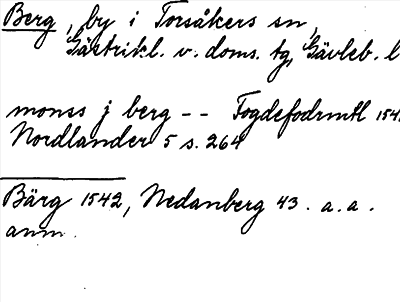 Berg, by i Torsåkers sn,
Gästrikl. v. doms. tg, Gävleb. l
monss j berg -- Fogdefodrmtl 154
Nordlander 5 s. 264
Bärg 1542, Nedanberg 43. a. a.
anm.